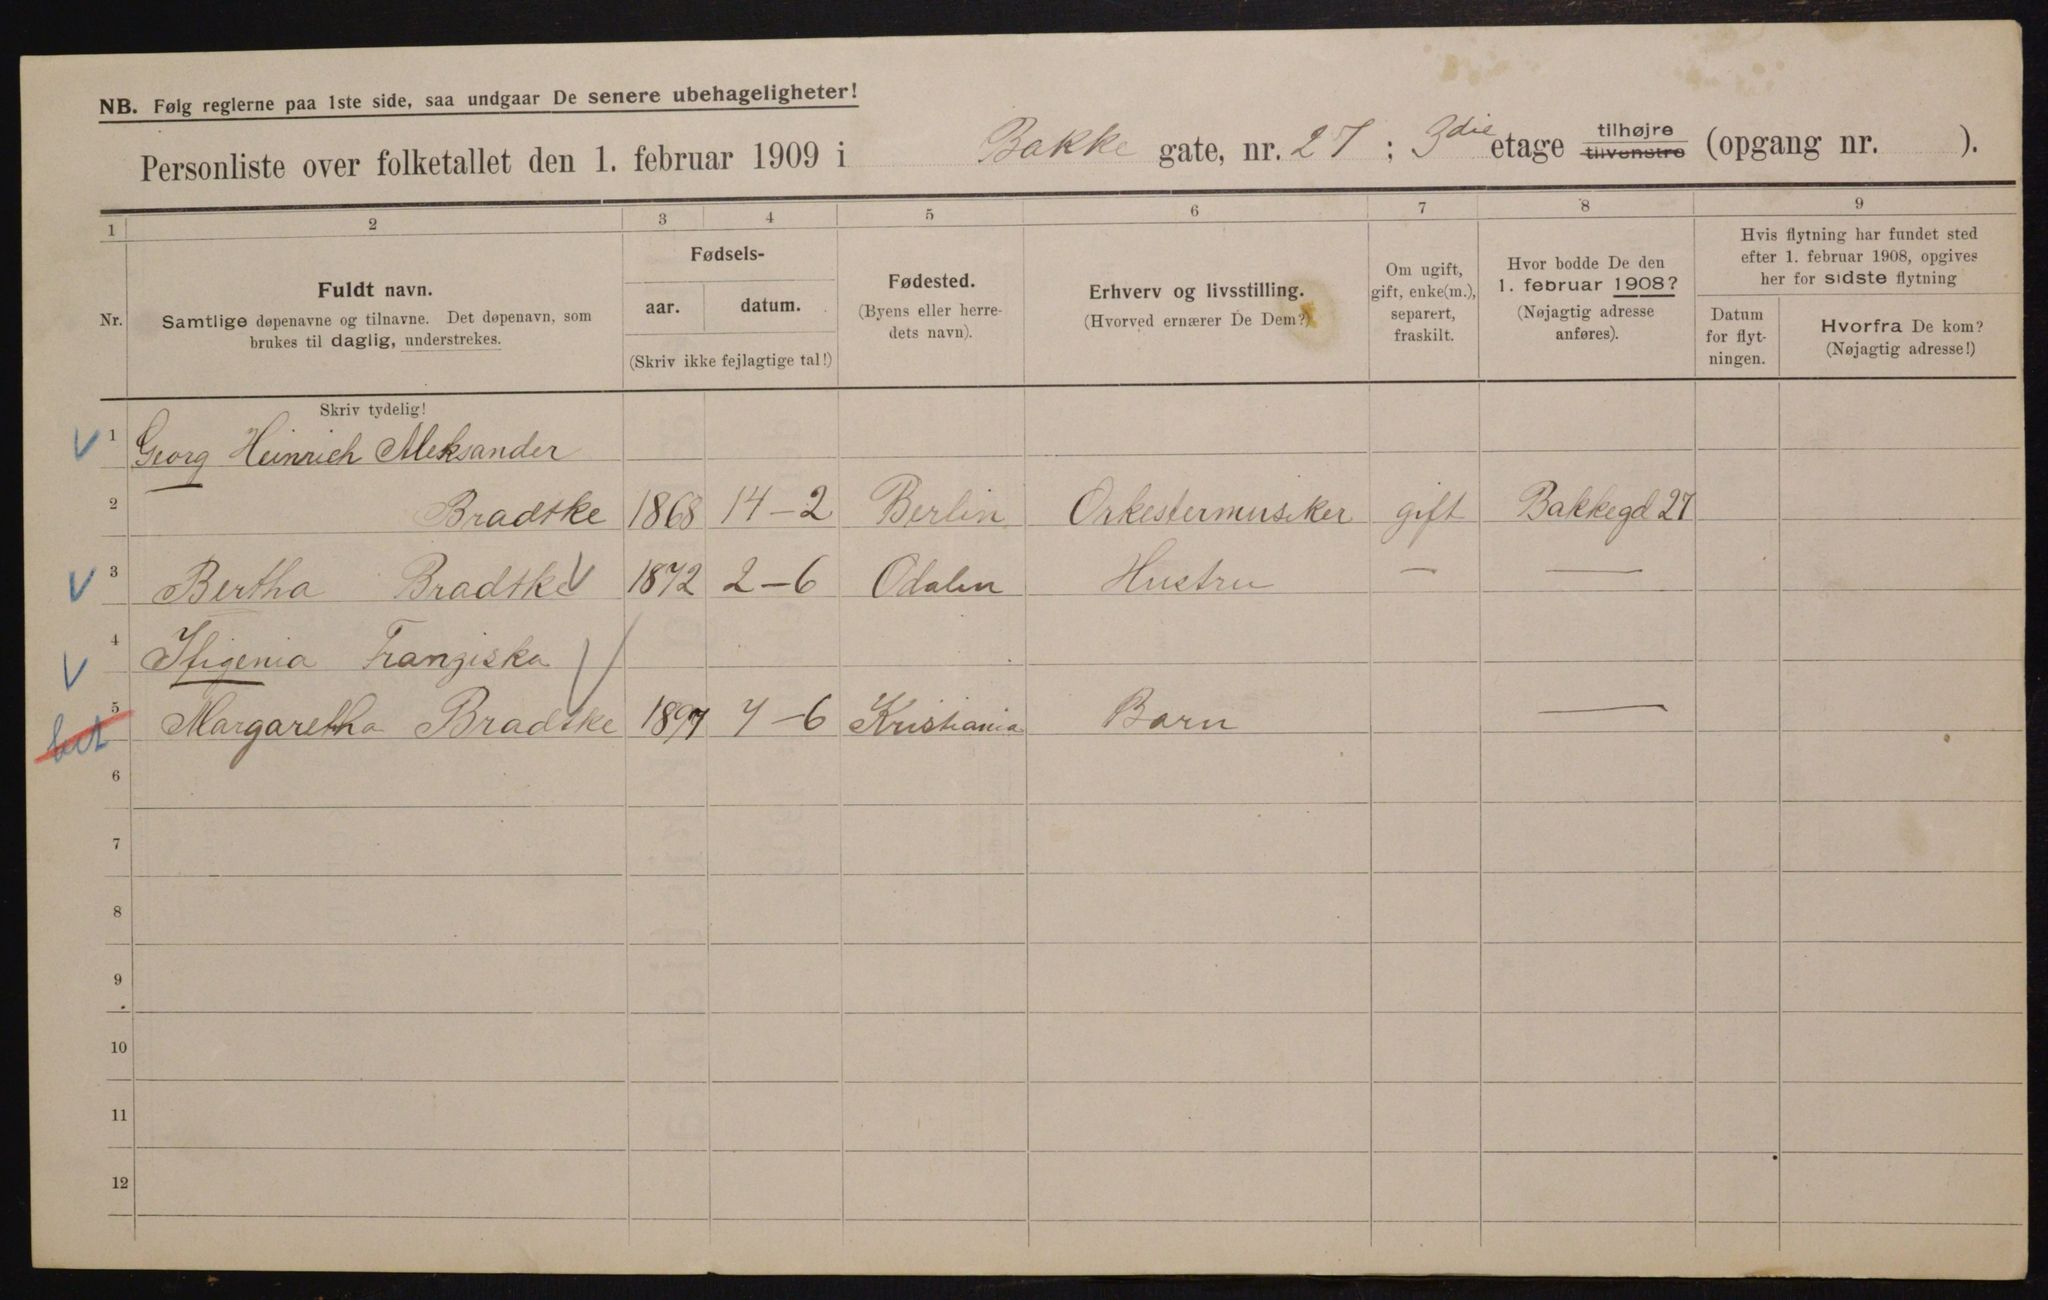 NB. Følg reglerne paa 1ste side, saa undgaar De senere ubehageligheter!
Personliste over folketallet den 1. februar 1909 i Bakke gate, nr. 27 ; 3die etage tilhøjre tilvenstre (opgang nr. ).
1 2 3 4 5 6 7 8 9
Nr.
Fuldt navn.
Samtlige døpenavne og tilnavne. Det døpenavn, som
brukes til daglig, understrekes.
Fødsels-
aar. datum.
(Skriv ikke fejlagtige tal!)
Fødested.
(Byens eller herre-
dets navn).
Erhverv og livsstilling.
(Hvorved ernærer De Dem?)
Om ugift,
gift, enke(m.),
separert,
fraskilt.
Hvor bodde De den
1. februar 1908?
(Nøjagtig adresse
anføres).
Hvis flytning har fundet sted
efter 1. februar 1908, opgives
her for sidste flytning
Datum
for flyt-
ningen.
Hvorfra De kom?
(Nøjagtig adresse!)
Skriv tydelig!
1 Georg Heinrich Aleksander
2 Bradtke 1868 14-2 Berlin Orkestermusiker gift Bakkegd 27
3 Bertha Bradtke 1872 2-6 Odalen Hustru — —
4 Ifigenia Franziska
5 Margaretha Bradtke 1897 7-6 Kristiania Barn —
6
7
8
9
10
11
12